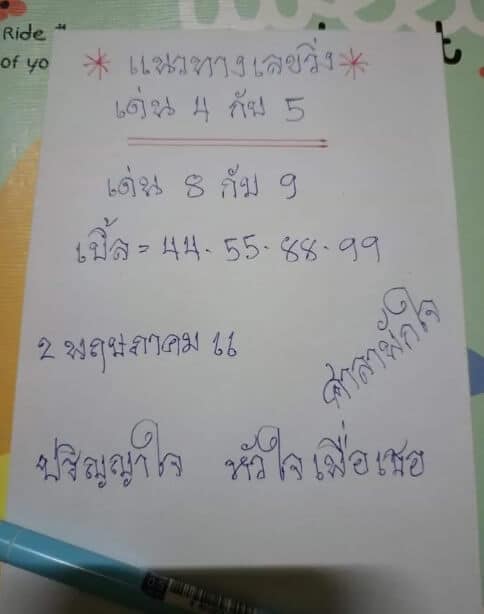 Ride
of yo
* แนวทางเลขวิ่ง *
เด่น 4 กับ 5
เด่น 8 กับ 9
เบิ้ล = 44 - 55 - 88 - 99
2 พฤษภาคม 66
ศาลาพักใจ
ปริญญาใจ หัวใจเพื่อเธอ